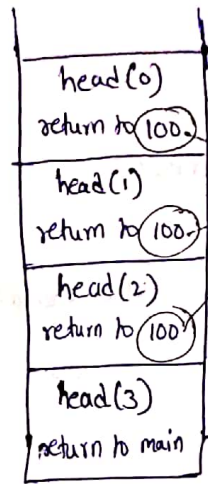 head(0)
return to 100.
head(1)
return to 100.
head(2)
return to 100
head(3)
return to main